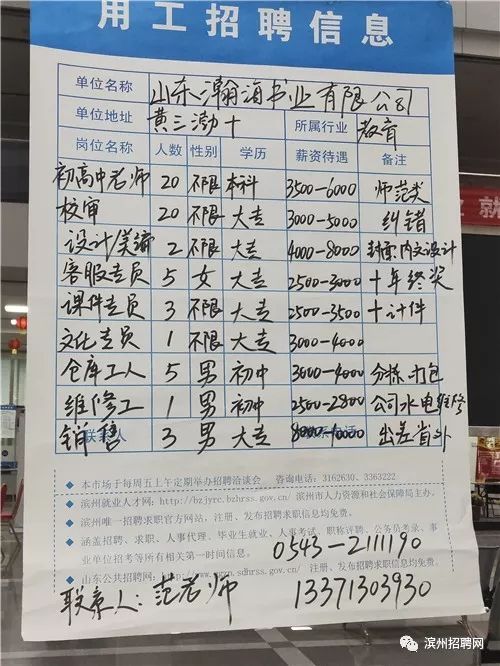 用工招聘信息
单位名称 山东瀚海书业有限公司
单位地址 黄三渤十 所属行业 教育
岗位名称 人数 性别 学历 薪资待遇 备注
初高中老师 20 不限 本科 3500-6000 师范类
校审 20 不限 大专 3000-5000 纠错
设计/美编 2 不限 大专 4000-8000 封面、内文设计
客服专员 5 女 大专 2500-3000 +年终奖
课件专员 3 不限 大专 2500-3500 +计件
文化专员 1 不限 大专 3000-4000
仓库工人 5 男 初中 3000-4000 分拣、打包
维修工 1 男 初中 2500-2800 公司水电维修
销售 3 男 大专 8000-10000 出差省外
◆ 本市场于每周五上午定期举办招聘洽谈会 咨询电话：3162630、3363222
◆ 滨州就业人才网：http://bzjyrc.bzhrss.gov.cn/ 滨州市人力资源和社会保障局主办。
◆ 滨州唯一招聘求职官方网站，注册、发布招聘求职信息均免费。
◆ 涵盖招聘、求职、人事代理、毕业生就业、人事考试、职称评聘、公务员考录、事
业单位招考等所有相关第一时间信息。
0543-2111190
◆ 山东公共招聘网 sdhrss.gov.cn/ 注册、发布招聘求职信息均免费。
联系人：范老师 13371303930
就
滨州招聘网